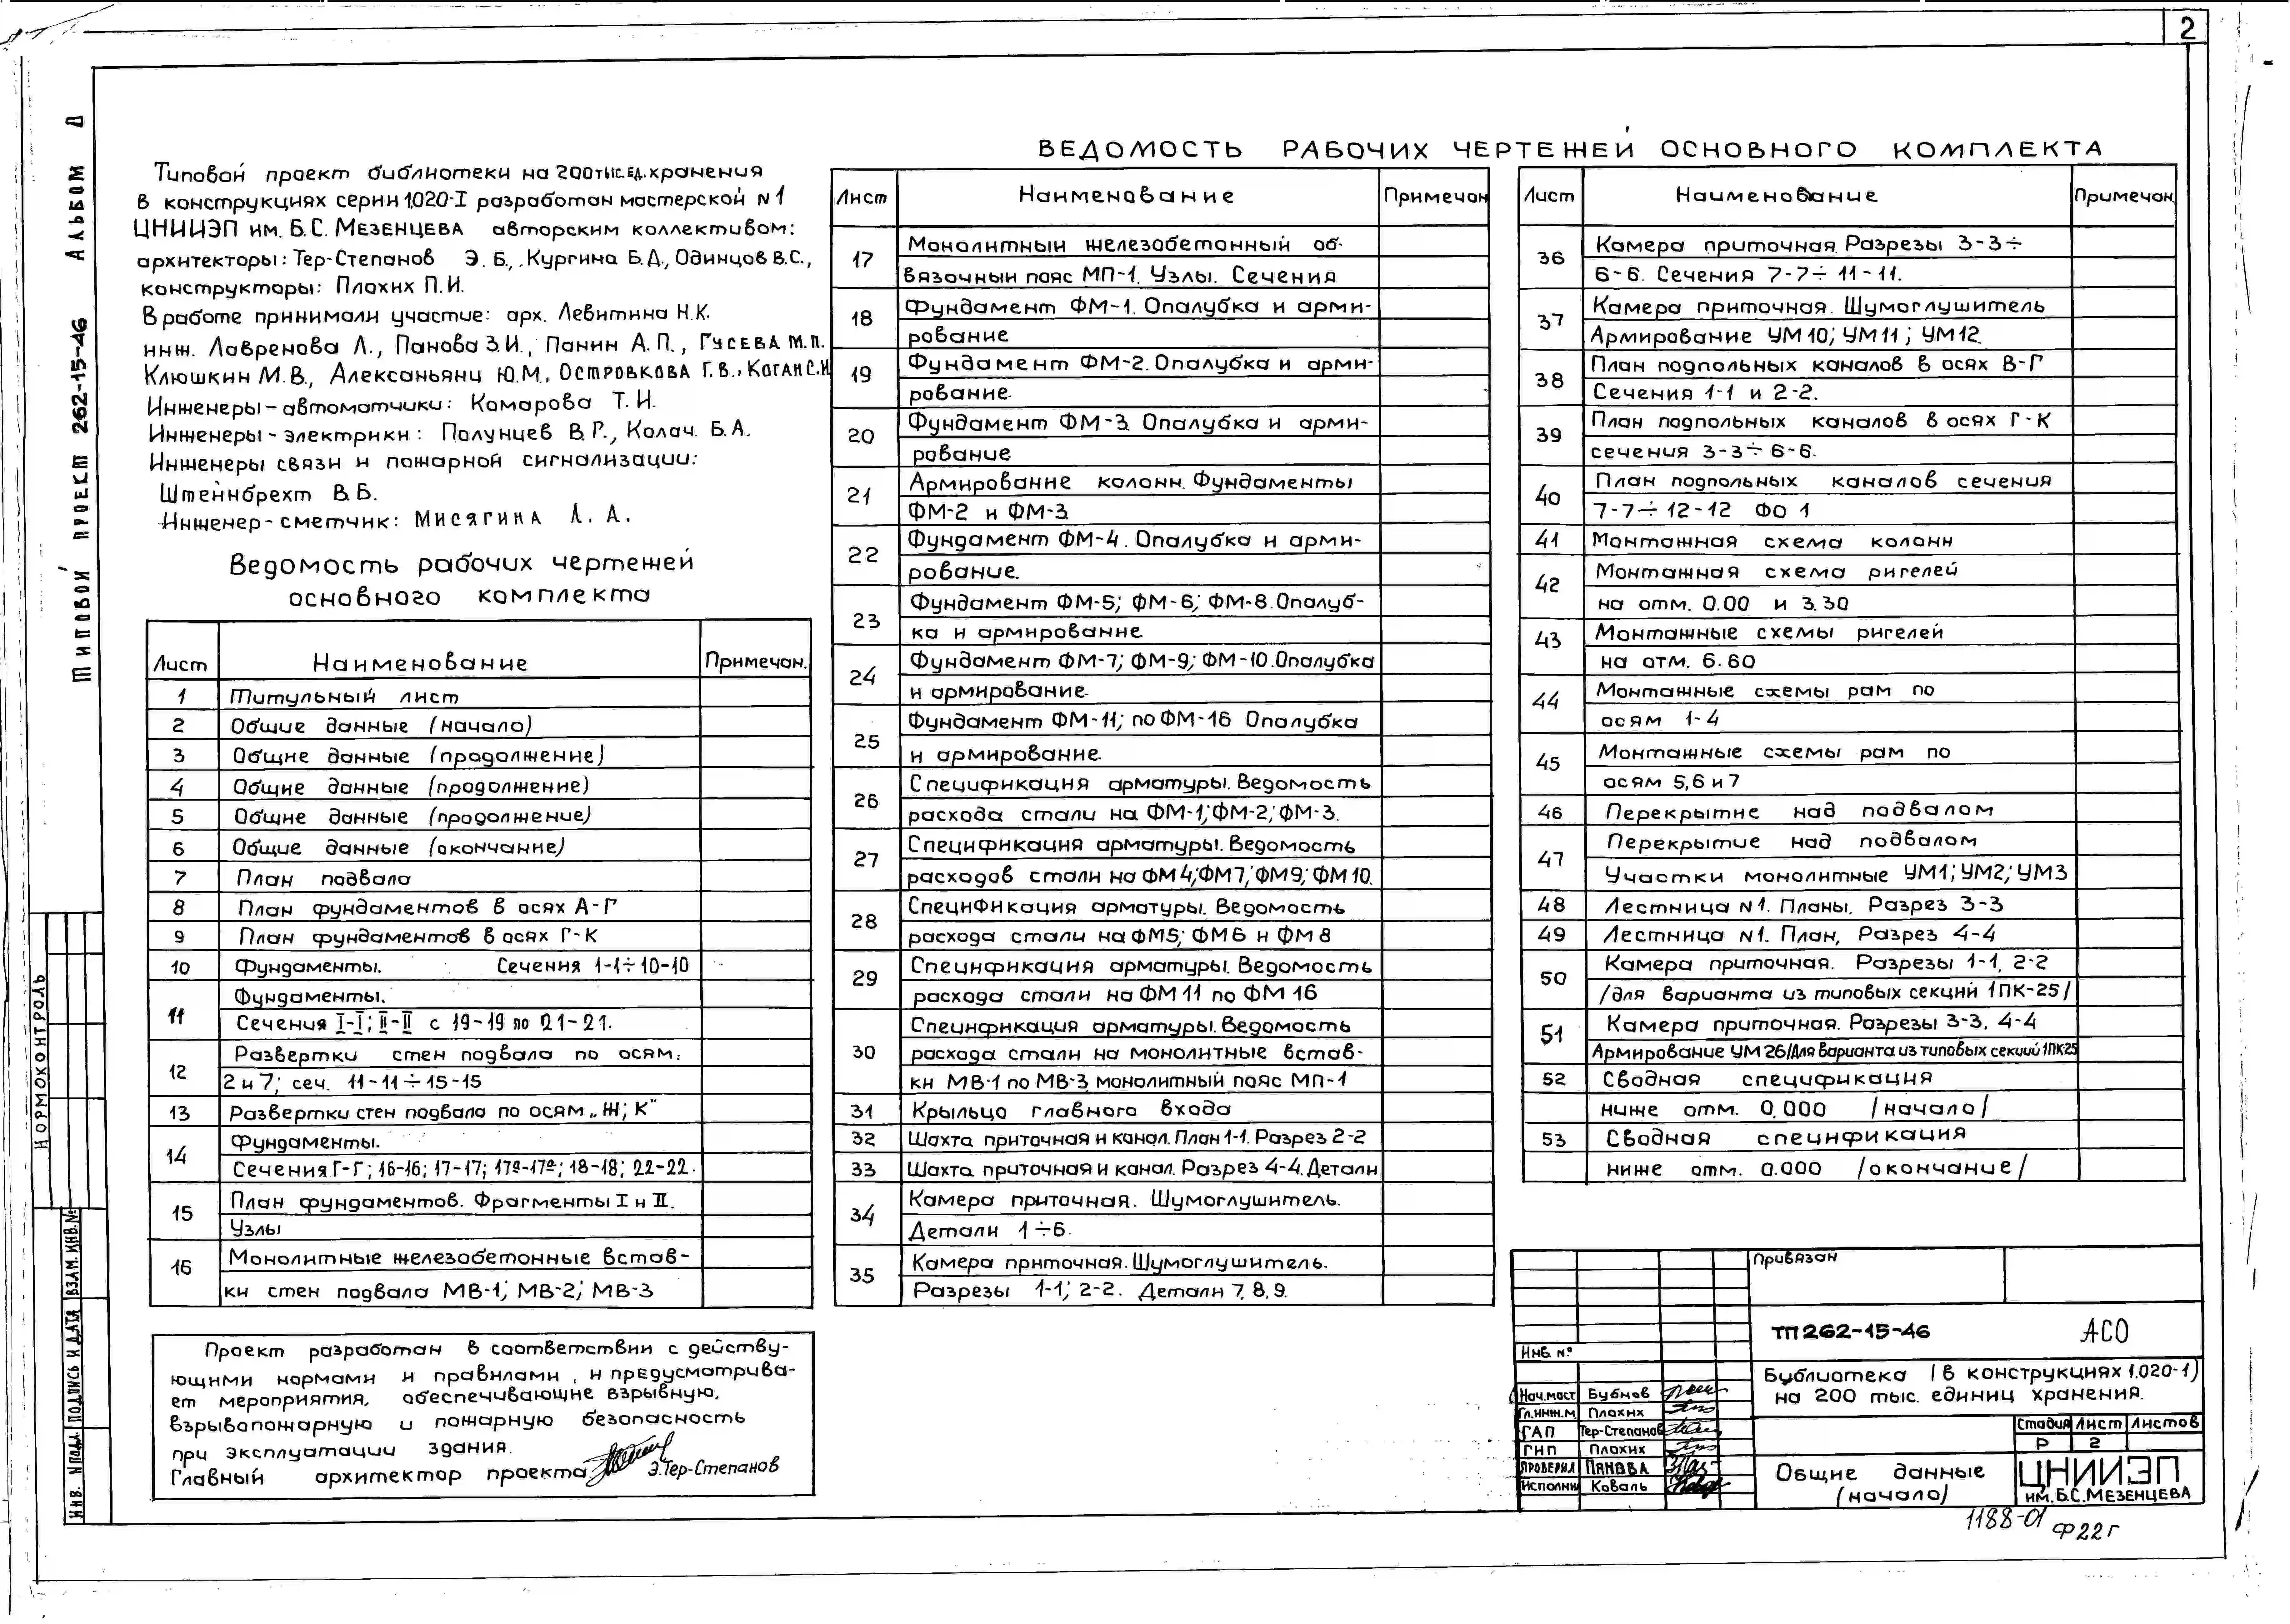 2
Типовой проект 262-15-46 Альбом
Типовой проект библиотеки на 200 тыс. ед. хранения
в конструкциях серии 1.020-I разработан мастерской №1
ЦНИИЭП им. Б.С. Мезенцева авторским коллективом:
архитекторы: Тер-Степанов Э. Б., Кургина Б.Д., Одинцов В.С.,
конструкторы: Плохих П.И.
В работе принимали участие: арх. Левитина Н.К.
инж. Лавренова Л., Панова З.И., Панин А.П., Гусева М.П.
Клюшкин М.В., Алексаньянц Ю.М., Островкова Г.В., Коган С.И
Инженеры-автоматчики: Комарова Т.И.
Инженеры-электрики: Полунцев В.Г., Колач. Б.А.
Инженеры связи и пожарной сигнализации:
Штейнбрехт В.Б.
Инженер-сметчик: Мисягина Л. А.
Ведомость рабочих чертежей
основного комплекта
Лист Наименование Примечан.
1 Титульный лист
2 Общие данные (начало)
3 Общие данные (продолжение)
4 Общие данные (продолжение)
5 Общие данные (продолжение)
6 Общие данные (окончание)
7 План подвала
8 План фундаментов в осях А-Г
9 План фундаментов в осях Г-К
10 Фундаменты. Сечения 1-1÷10-10
11 Фундаменты.
Сечения I-I; II-II с 19-19 по 21-21.
12 Развертки стен подвала по осям:
2 и 7; сеч. 11-11÷15-15
13 Развертки стен подвала по осям „Ж; К"
14 Фундаменты.
Сечения Г-Г; 16-16; 17-17; 17а-17а; 18-18; 22-22.
15 План фундаментов. Фрагменты I и II.
Узлы
16 Монолитные железобетонные встав-
ки стен подвала МВ-1; МВ-2; МВ-3
Проект разработан в соответствии с действу-
ющими нормами и правилами, и предусматрива-
ет мероприятия, обеспечивающие взрывную,
взрывопожарную и пожарную безопасность
при эксплуатации здания.
Главный архитектор проекта Э.Тер-Степанов
ВЕДОМОСТЬ РАБОЧИХ ЧЕРТЕЖЕЙ ОСНОВНОГО КОМПЛЕКТА
Лист Наименование Примечан
17 Монолитный железобетонный об-
вязочный пояс МП-1. Узлы. Сечения
18 Фундамент ФМ-1. Опалубка и арми-
рование
19 Фундамент ФМ-2. Опалубка и арми-
рование.
20 Фундамент ФМ-3. Опалубка и арми-
рование
21 Армирование колонн. Фундаменты
ФМ-2 и ФМ-3
22 Фундамент ФМ-4. Опалубка и арми-
рование.
23 Фундамент ФМ-5; ФМ-6; ФМ-8. Опалуб-
ка и армирование
24 Фундамент ФМ-7; ФМ-9; ФМ-10. Опалубка
и армирование.
25 Фундамент ФМ-11; по ФМ-16 Опалубка
и армирование.
26 Спецификация арматуры. Ведомость
расхода стали на ФМ-1; ФМ-2; ФМ-3.
27 Спецификация арматуры. Ведомость
расходов стали на ФМ4; ФМ7; ФМ9; ФМ10.
28 Спецификация арматуры. Ведомость
расхода стали на ФМ5; ФМ6 и ФМ8
29 Спецификация арматуры. Ведомость
расхода стали на ФМ11 по ФМ16
30 Спецификация арматуры. Ведомость
расхода стали на монолитные встав-
ки МВ-1 по МВ-3, монолитный пояс МП-1
31 Крыльцо главного входа
32 Шахта приточная и канал. План 1-1. Разрез 2-2
33 Шахта приточная и канал. Разрез 4-4. Детали
34 Камера приточная. Шумоглушитель.
Детали 1÷6.
35 Камера приточная. Шумоглушитель.
Разрезы 1-1; 2-2. Детали 7, 8, 9.
Лист Наименование Примечан.
36 Камера приточная. Разрезы 3-3÷
6-6. Сечения 7-7÷11-11.
37 Камера приточная. Шумоглушитель
Армирование УМ10; УМ11; УМ12.
38 План подпольных каналов в осях В-Г
Сечения 1-1 и 2-2.
39 План подпольных каналов в осях Г-К
сечения 3-3÷6-6.
40 План подпольных каналов сечения
7-7÷12-12 ФО 1
41 Монтажная схема колонн
42 Монтажная схема ригелей
на отм. 0.00 и 3.30
43 Монтажные схемы ригелей
на отм. 6.60
44 Монтажные схемы рам по
осям 1-4
45 Монтажные схемы рам по
осям 5,6 и 7
46 Перекрытие над подвалом
47 Перекрытие над подвалом
Участки монолитные УМ1; УМ2; УМ3
48 Лестница №1. Планы. Разрез 3-3
49 Лестница №1. План, Разрез 4-4
50 Камера приточная. Разрезы 1-1, 2-2
/для варианта из типовых секций 1ПК-25/
51 Камера приточная. Разрезы 3-3, 4-4
Армирование УМ26/Для варианта из типовых секций 1ПК25
52 Сводная спецификация
ниже отм. 0.000 /начало/
53 Сводная спецификация
ниже отм. 0.000 /окончание/
Привязан
Инв. №
ТП 262-15-46 АСО
Нач.маст Бубнов
Гл.инж.м. Плохих
ГАП Тер-Степанов
ГИП Плохих
Проверил Панова
Исполни Коваль
Библиотека (в конструкциях 1.020-1)
на 200 тыс. единиц хранения.
Стадия Лист Листов
Р 2
Общие данные
(начало)
ЦНИИЭП
им. Б.С. Мезенцева
1188-01 Ф22г
Нормоконтроль
Инв. № подл. Подпись и дата Взам. инв. №